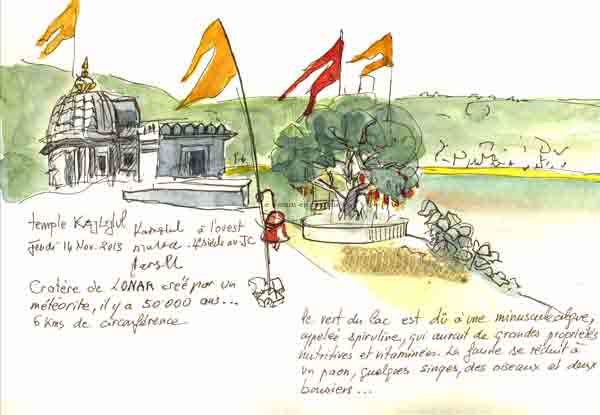 temple
Jeudi 14 Nov. 2013
à l'ouest
Cratère de LONAR créé par un
météorite, il y a 50 000 ans...
6 kms de circonférence
le vert du lac est dû à une minuscule algue,
appelée spiruline, qui aurait de grandes propriétés
nutritives et vitaminées. La faune se réduit à
un paon, quelques singes, des oiseaux et deux
bousiers...